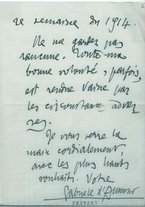 2e semaine du 1914.
Ne me gardez pas
rancune. Toute ma
bonne volonté, parfois,
est rendue vaine par
les circonstances adver
ses.
Je vous serre la
main cordialement,
avec les plus hauts
souhaits. Votre
Gabriele d'Annunzio